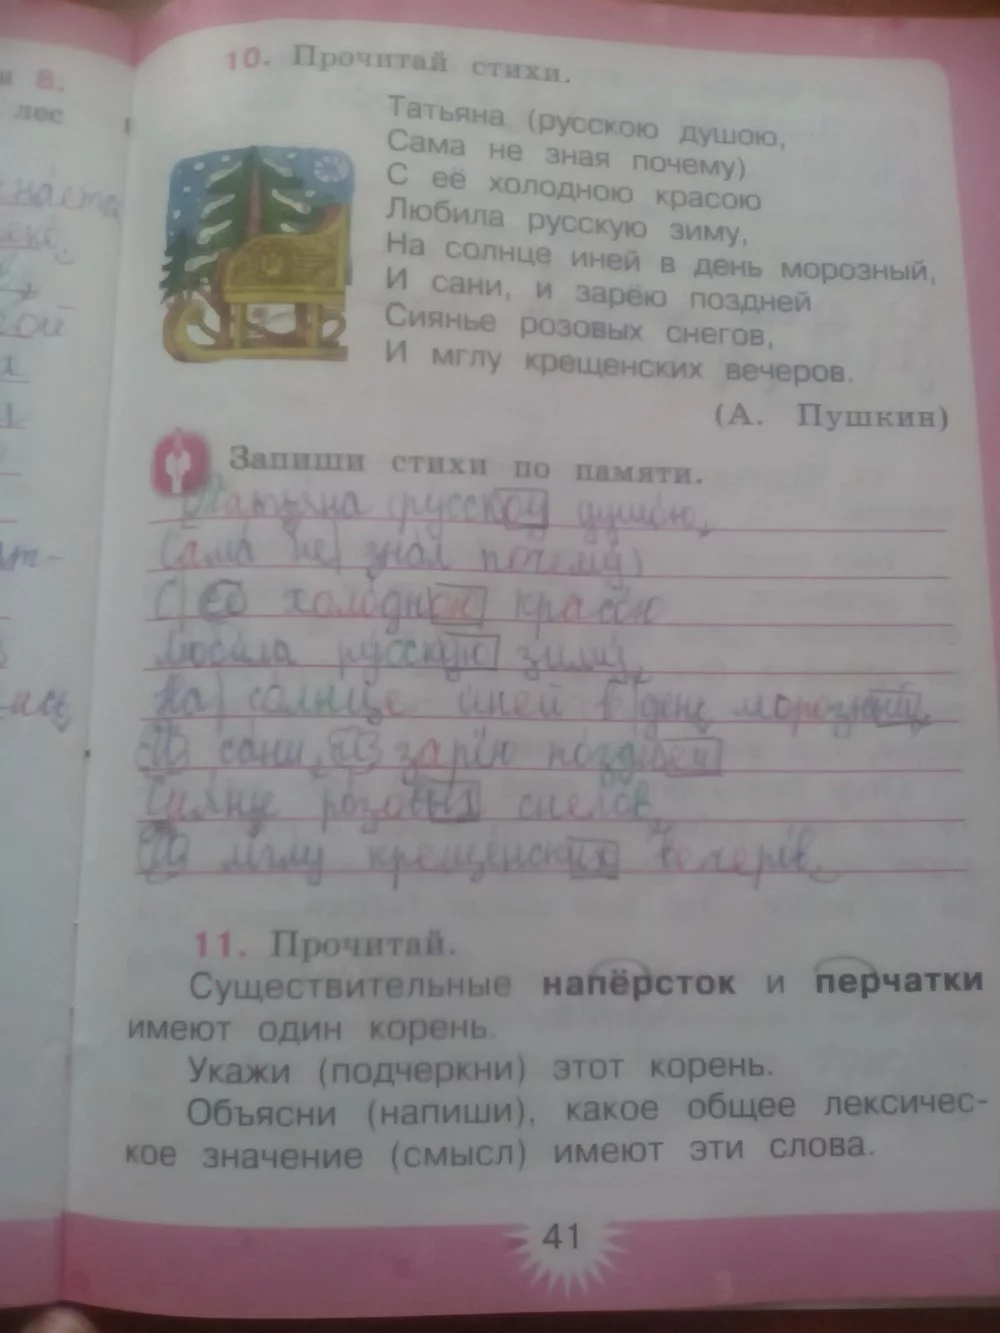 8.
лес
10. Прочитай стихи.
Татьяна (русскою душою,
Сама не зная почему)
С её холодною красою
Любила русскую зиму,
На солнце иней в день морозный,
И сани, и зарёю поздней
Сиянье розовых снегов,
И мглу крещенских вечеров.
(А. Пушкин)
Запиши стихи по памяти.
Татьяна (русскою душою,
Сама не зная почему)
С её холодною красою
Любила русскую зиму,
На солнце иней в день морозный,
И сани, и зарёю поздней
Сиянье розовых снегов,
И мглу крещенских вечеров.
11. Прочитай.
Существительные напёрсток и перчатки
имеют один корень.
Укажи (подчеркни) этот корень.
Объясни (напиши), какое общее лексичес-
кое значение (смысл) имеют эти слова.
41